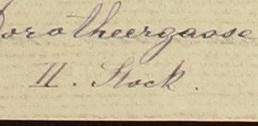 Dorotheergasse
II. Stock.